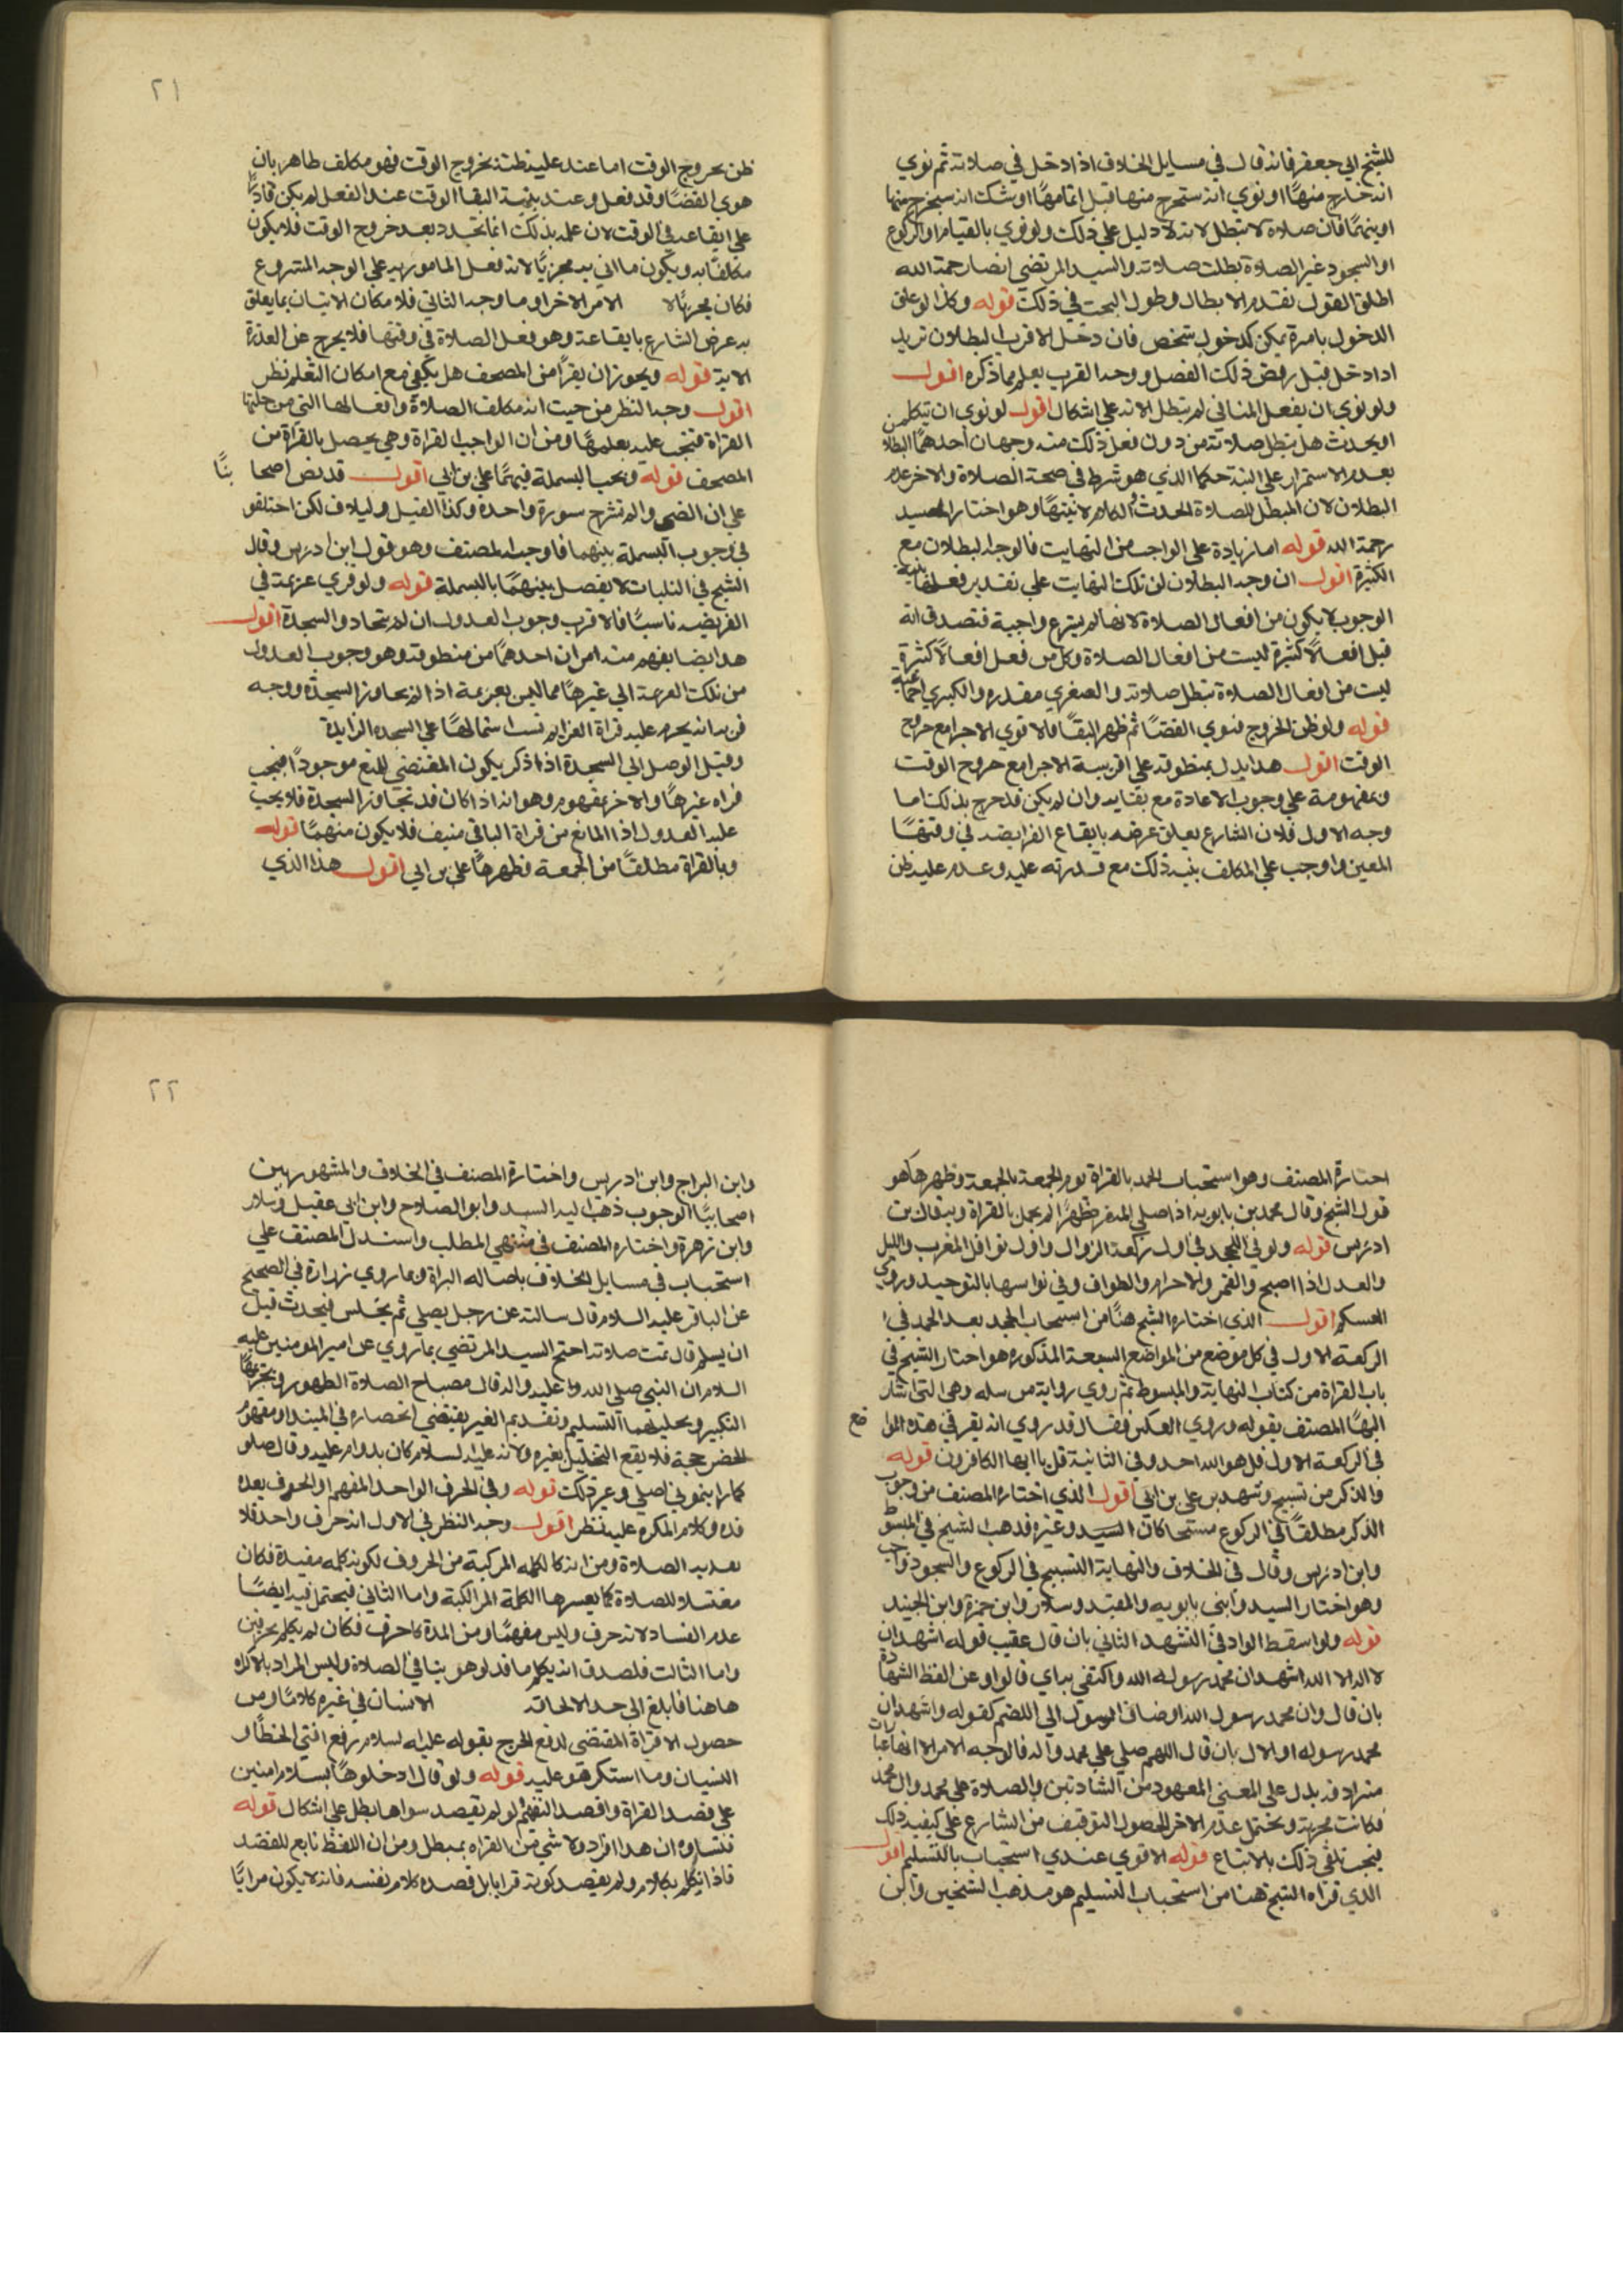 للشيخ ابي جعفر فانه قال في مسايل الخلاف اذا دخل في صلاته ثم نوي
انه خارج منها او نوي انه سيخرج منها قبل اتمامها او شك انه سيخرج منها
او يتمها فان صلاته لا تبطل لانه لا دليل علي ذلك ولو نوي بالقيام او الركوع
او السجود غير الصلاة بطلت صلاته والسيد المرتضي ايضا رحمه الله
اطلق القول بعدم الابطال وطول البحث في ذلك قوله وكذا لو علق
الدخول بامر يمكن كدخول شخص فان دخل الاقرب البطلان يريد
اذا دخل قبل رفض ذلك الفصل ووجه القرب يعلم مما ذكره اقول
ولو نوي ان يفعل المنافي لم تبطل الا انه علي اشكال اقول لو نوي ان يتكلم
او يحدث هل تبطل صلاته من دون فعل ذلك منه وجهان احدهما البطلا
بعدم الاستمرار علي النية حكما الذي هو شرط في صحة الصلاة والاخر عدم
البطلان لان المبطل للصلاة الحدث والكلام لا نيتها وهو اختار السيد
رحمه الله قوله اما زيادة علي الواجب من الهيات فالوجه البطلان مع
الكثرة اقول ان وجه البطلان لن تلك الهيات علي تقدير فعلها بنية
الوجوب لا يكون من افعال الصلاة لانها لم يشرع واجبة فتصدق انه
فعل افعالا كثيرة ليست من افعال الصلاة وكل من فعل افعالا كثيرة
ليست من افعال الصلاة تبطل صلاته والصغري مقدره والكبري اجماعيه
قوله ولو ظن الخروج فنوي القضا ثم ظهر البقا فالاقوي الاجزا مع خروج
الوقت اقول هذا يدل بمنطوقه علي اقربية الاجزا مع خروج الوقت
وبمفهومه علي وجوب الاعادة مع بقايه وان لم يكن قد خرج بذلك اما
وجه الاول فلان الشارع يعلق غرضه بايقاع الفرايضه في وقتها
المعين واوجب علي المكلف بنية ذلك مع قدرته عليه وعدم عليه ظن
٢١
ظن بخروج الوقت اما عند عليه ظنه بخروج الوقت فهو مكلف ظاهر بان
هوي القضا وقد فعل وعند بنية البقا الوقت عند الفعل لم يكن قادرا
علي ايقاعه في الوقت لان علمه بذلك انما تجدد بعد خروج الوقت فلا يكون
مكلفا به ويكون ما اتي به مجزيا لانه فعل المامور به علي الوجه المشروع
فكان مجزيا لا الامر الاخر او ما وجه الثاني فلا مكان الاتيان بما يعلق
به غرض الشارع بايقاعه وهو فعل الصلاة في وقتها فلا يخرج عن العهدة
الا به قوله ويجوز ان يقرا من المصحف هل يكفي مع امكان التعلم نظر
اقول وجه النظر من حيث انه مكلف الصلاة وافعالها التي من جملتها
القراة فيجب عليه تعلمها ومن ان الواجب القراة وهي يحصل بالقراة من
المصحف قوله ويجب البسملة فيهما علي راي اقول قد نص اصحا بنا
علي ان الضحي والم نشرح سورة واحده وكذا الفيل ولايلاف لكن اختلفو
في وجوب البسملة بينهما فاوجب المصنف وهو قول ابن ادريس وقال
الشيخ في التبيان لا يفصل بينهما بالبسملة قوله ولو قري عزيمة في
الفريضه ناسيا فالاقرب وجوب العدول ان لم يتجاوز السجدة اقول
هذا ايضا يفهم منه امران احدهما من منطوقه وهو وجوب العدول
من تلك العزيمة الي غيرها مما ليس بعزيمة اذا لم يجاوز السجدة ووجه
قربه انه يحرم عليه قراة العزايم لاشتمالها علي السجده الزايدة
وقبل الوصل الي السجدة اذا ذكر يكون المقتضي للمنع موجودا فيجب
قراه غيرها والاخر بمفهوم وهو انه اذا كان قد تجاوز السجدة فلا يجب
عليه العدول اذا المانع من قراة الباقي منتف فلا يكون منهما قوله
وبالقراة مطلقا من الجمعة وظهرها علي راي اقول هذا الذي
اختارة المصنف وهو استحباب الجهر بالقراة يوم الجمعة بالجمعة وظهرها هو
قول الشيخ وقال محمد بن بابويه اذا صلي المنفرد ظهرا لم يجهر بالقراة وبه قال بن
ادريس قوله ولو في الجحد في اول ركعة الزوال واول نوافل المغرب والليل
والعدل اذا اصبح والفجر والاحرام والطواف وفي ثوانيها بالتوحيد وروي
العسكس اقول الذي اختاره الشيخ هنا من استحباب الجحد بعد الحمد في ا
الركعة الاول في كل موضع من المواضع السبعة المذكوره هو اختار الشيخ في
باب القراة من كتاب النهاية والمبسوط ثم روي رواية مرسله وهي التي اشار
اليها المصنف بقوله وروي العكس وقال قد روي انه يقر في هذه الموا ضع
في الركعة الاول قل هو الله احد وفي الثانية قل يا ايها الكافرون قوله
والذكر من تسبيح وشهد بس علي بن ابي اقول الذي اختاره المصنف من وجوب
الذكر مطلقا في الركوع مستحبا كان السيد وغيره فذهب الشيخ في المبسوط
وابن ادريس وقال في الخلاف والنهاية التسبيح في الركوع والسجود واجب
وهو اختار السيد وابني بابويه والمفيد وسلار وابن حمزة وابن الجنيد
قوله ولو اسقط الواو في التشهد الثاني بان قال عقيب قوله اشهد ان
لا اله الا الله اشهد ان محمد رسوله الله واكتفي به اي قالوا او عن لفظ الشهادة
بان قال وان محمد رسول الله او ضاف الرسول الي الضم كقوله واشهد ان
محمد رسوله او الال بان قال اللهم صلي علي محمد وآله فالوجه الامر الا انها عبارات
متراد فه يدل علي المعني المعهود من الشادتين والصلاة علي محمد وال محمد
فكانت مجزية ويحتمل عدم الاخر لحصول التوقيف من الشارع علي كيفيه ذلك
فيجب تلقي ذلك بالاتباع قوله الاقوي عندي استحباب بالتسليم اقول
الذي قراه الشيخ هنا من استحباب التسليم هو مذهب الشيخين وابن
٢٢
وابن البراج وابن ادريس واختارة المصنف في الخلاف والمشهور بين
اصحابنا الوجوب ذهب اليه السيد وابو الصلاح وابن ابي عقيل وسلار
وابن زهرة واختاره المصنف في منتهي المطلب واستدل المصنف علي
استحباب في مسايل الخلاف باصاله البراة وبما روي زرارة في الصحيح
عن الباقر عليه السلام قال سالته عن رجل يصلي ثم يجلس فيحدث قبل
ان يسلم قال تمت صلاته احتج السيد المرتضي بما روي عن امير المومنين عليه
السلام ان النبي صلي الله عليه واله قال مفتاح الصلاة الطهور وتحريمها
التكبير وتحليلها التسليم وتقديم الغير يقتضي انحصاره في المبتدا ومفهوم
الحضر حجة فلا يقع التحليل بغيره ولانه عليه السلام كان يداوم عليه وقال صلو
كما رايتموني اصلي وغير ذلك قوله وفي الحرف الواحد المفهم والحرف بعده
مده وكلام المكره عليه نظر اقول وجه النظر في الاول انه حرف واحد فلا
يعد به الصلاة ومن انه كالكلمه المركبة من الحروف لكونه كلمه مفيدة فكان
مفسدا للصلاة كما يفسرها الكلمة المراكبة واما الثاني فيحتمل فيه ايضا
عدم الفساد لانه حرف وليس مفهما ومن المدة كاحرف فكان لم يكلم بحرفين
واما الثالث فلصدق انه يكلم ما قد لو هو ينافي الصلاة وليس المراد بالاكراه
هاهنا فابلغ الي حد الالحاقه الانسان في غيره كلاما ومن
حصول الاقراة المقتضي لدفع الحرج بقوله عليه السلام رفع امتي الخطا و
النسيان وما استكرهو عليه قوله ولو قال ادخلوها بسلام امنين
علي قصد القراة وافصد التفهيم لو لم يقصد سواها بطل علي اشكال قوله
تنساوه ان هذا اقراد ولا شي من القراه بمبطل ومن ان اللفظ تابع للقصد
فاذا يكلم بكلام ولم يقصد كونه قرانا بل قصده كلام نفسه فانه لا يكون مرايا